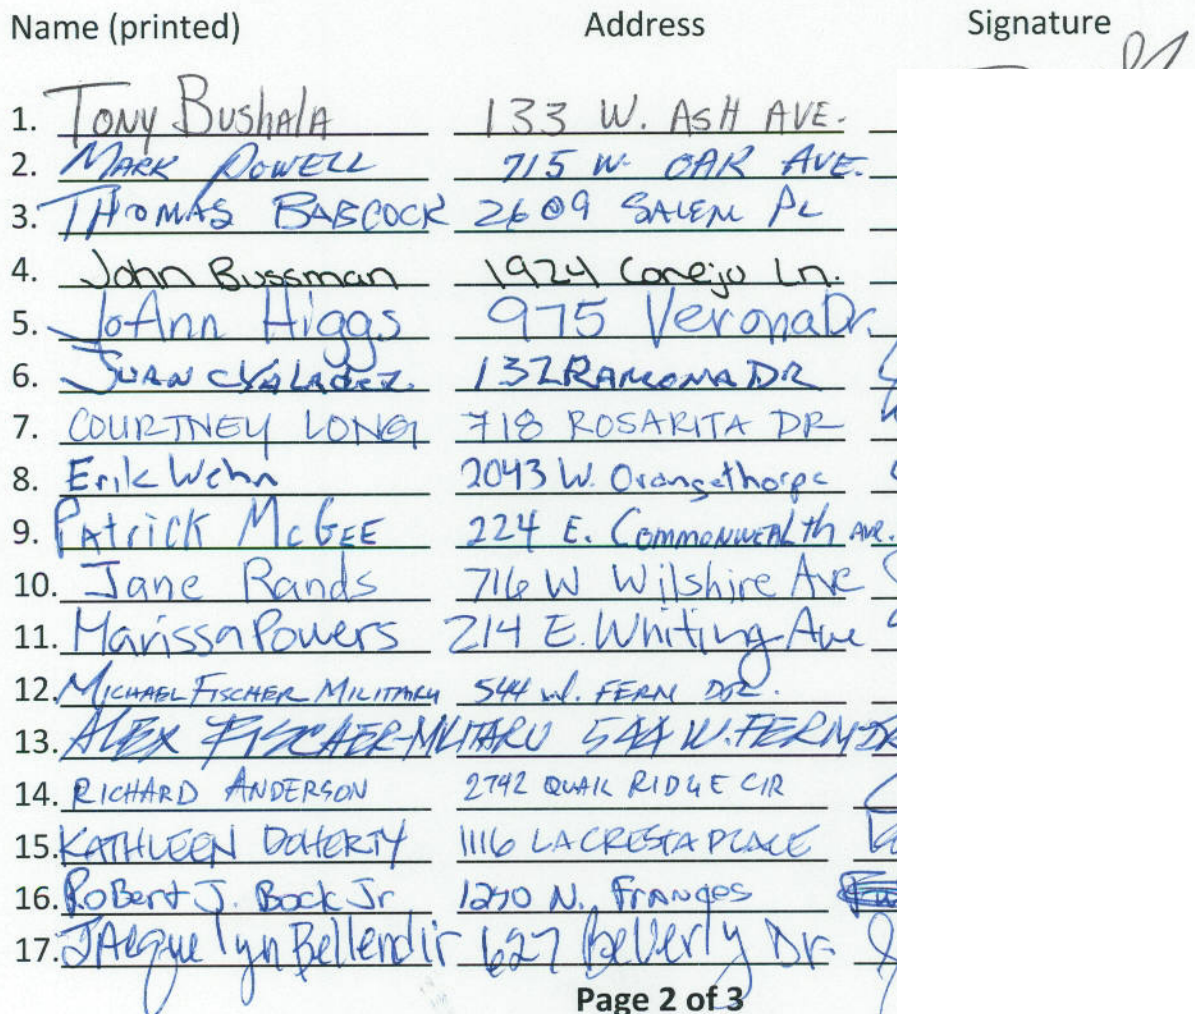 Name (printed) Address Signature
1. Tony Bushala 133 W. ASH AVE.
2. MARK POWELL 715 W. OAK AVE.
3. THOMAS BABCOCK 2609 SALEM PL
4. John Bussman 1924 Conejo Ln.
5. JoAnn Higgs 975 Verona Dr.
6. JUAN 132 RAMONA DR
7. COURTNEY LONG 718 ROSARITA DR
8. Erik Wehn 2043 W. Orangethorpe
9. PAtrick McGEE 224 E. COMMONWEALth AVE.
10. Jane Rands 716 W Wilshire Ave
11. Marissa Powers 214 E. Whiting Ave
12. MICHAEL FISCHER MILITARU 544 W. FERN DR.
13. ALEX FISCHER-MILITARU 544 W. FERN DR
14. RICHARD ANDERSON 2742 QUAIL RIDGE CIR
15. KATHLEEN DOHERTY 1116 LA CRESTA PLACE
16. RoBert J. Bock Jr N. FRANCES
17. JAcquelyn Bellendir 627 BeVerly Dr.
Page 2 of 3